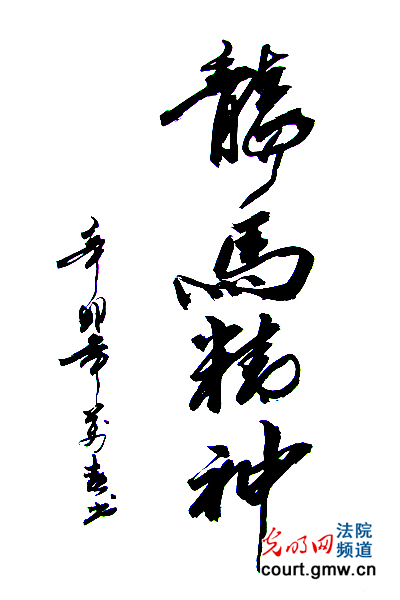 龍馬精神
辛卯年萬春书
光明网
法院
频道
court.gmw.cn